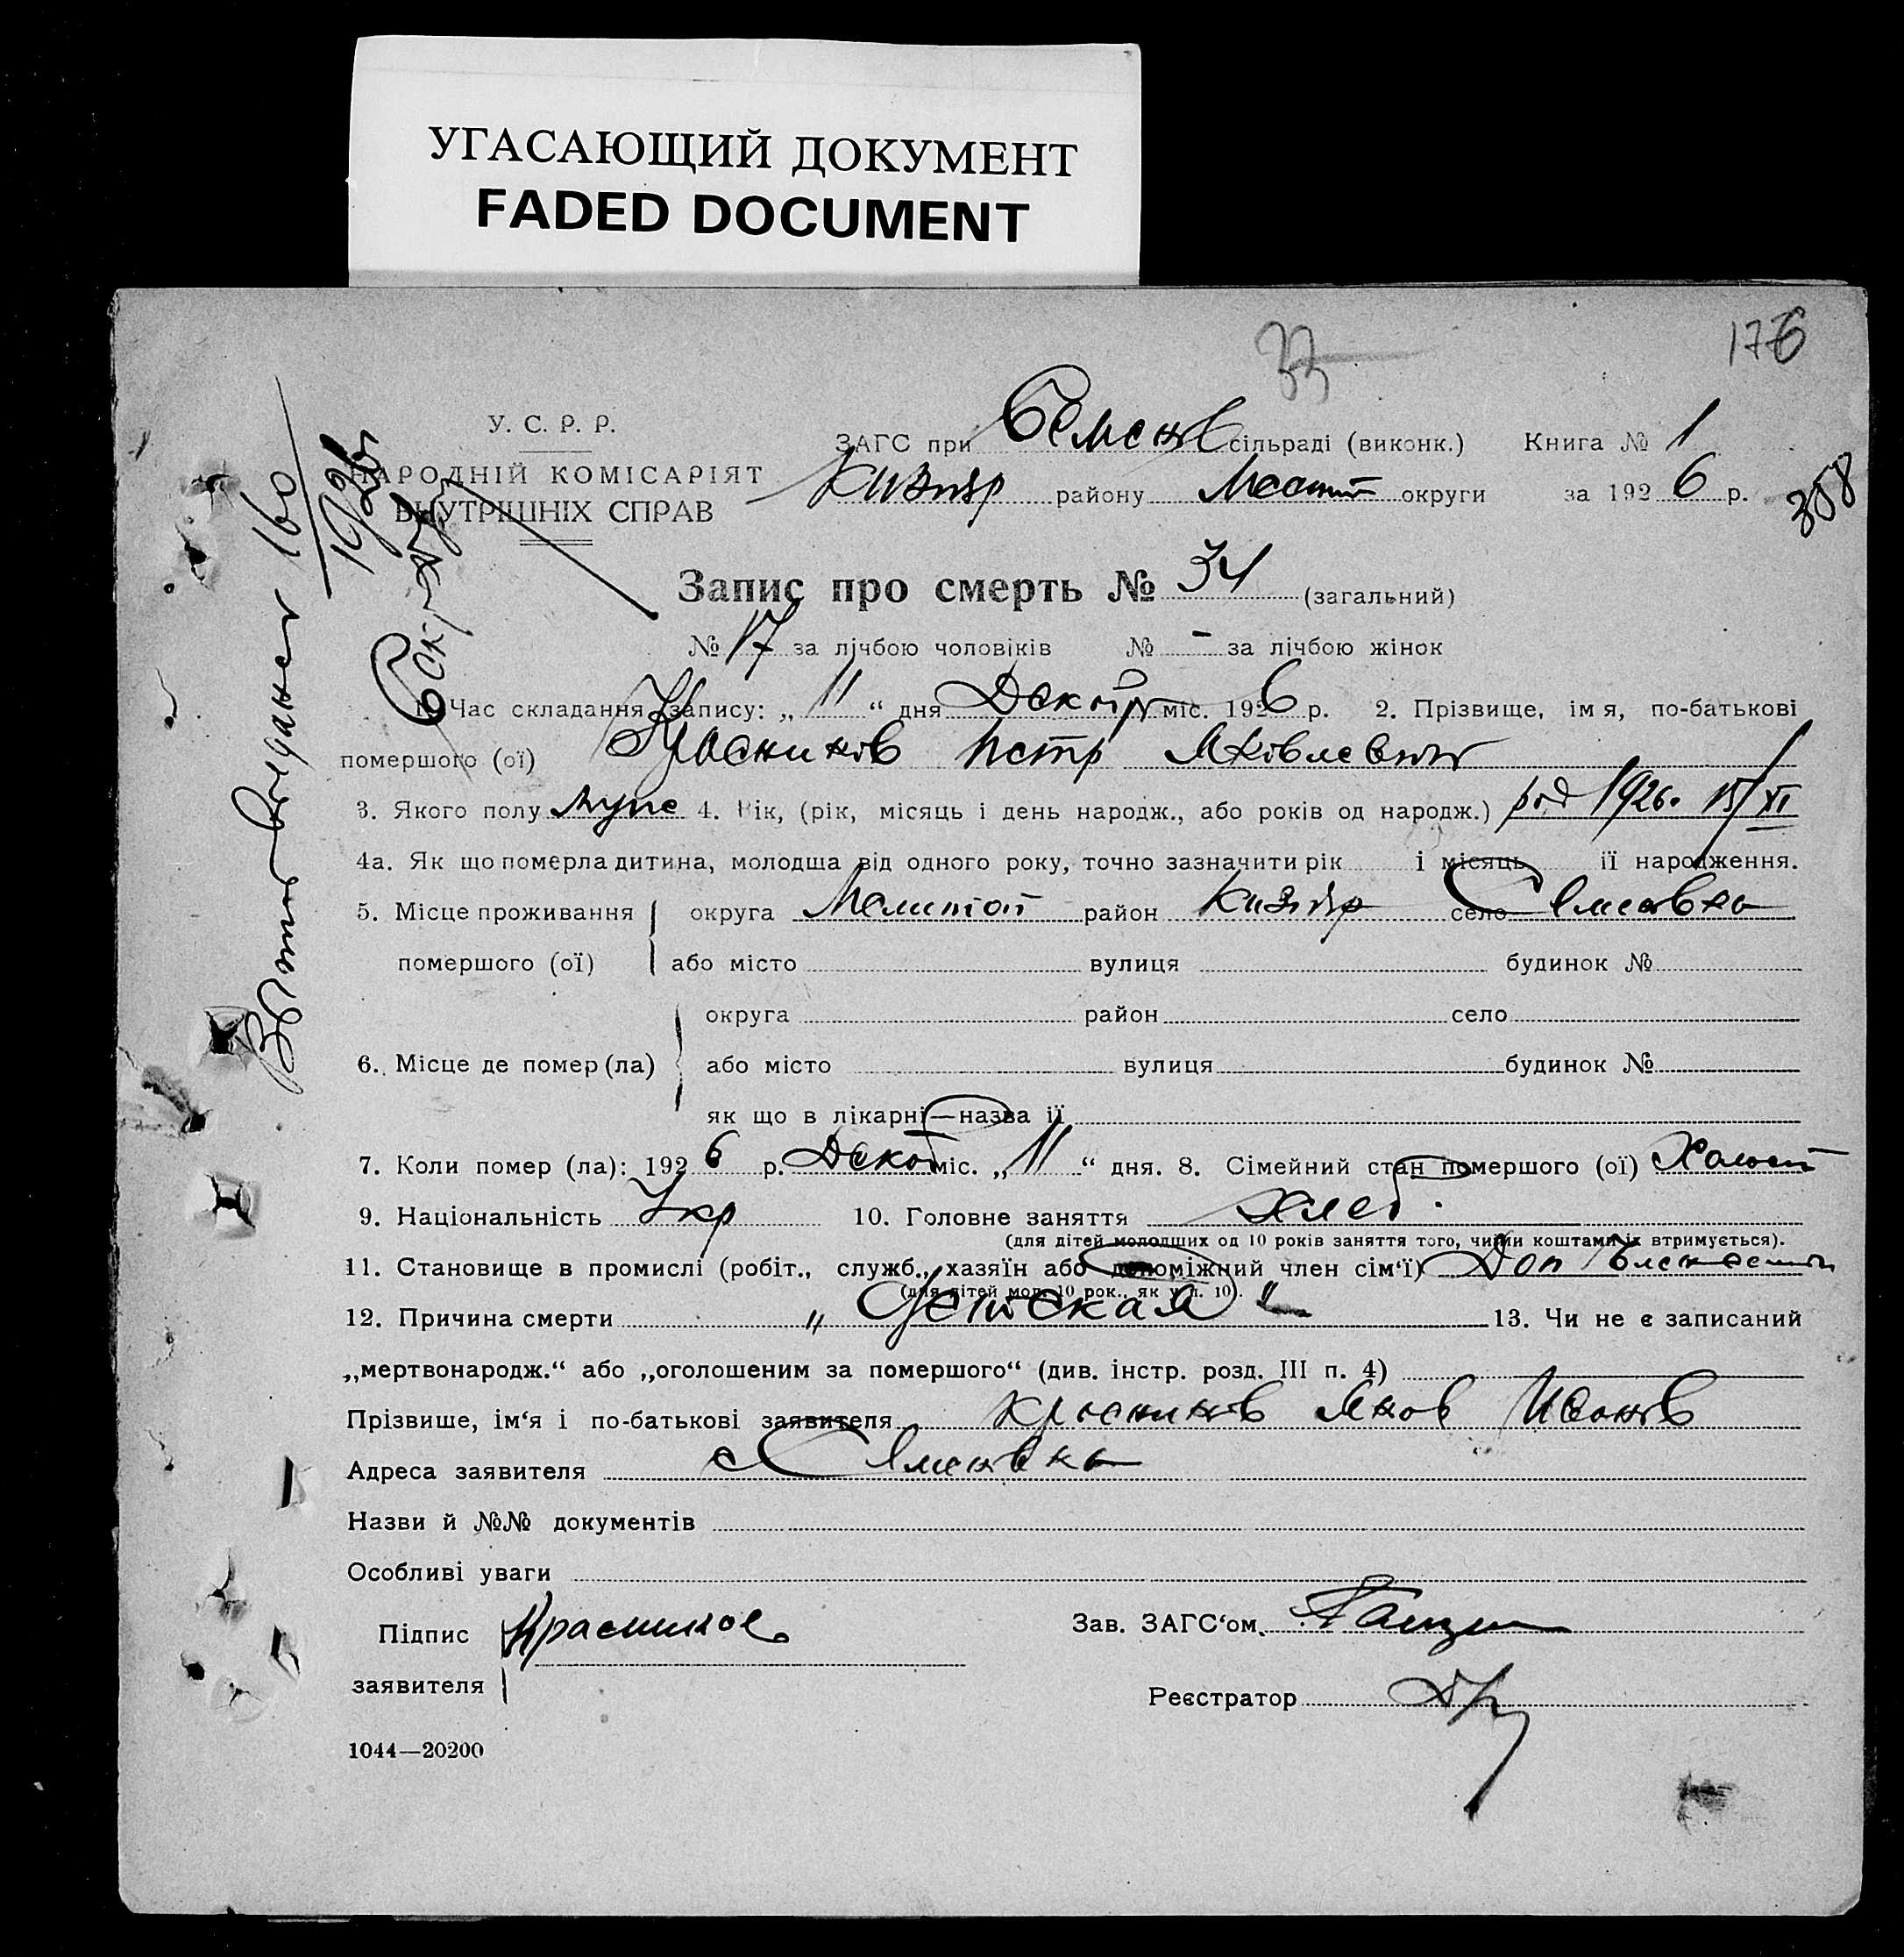 УГАСАЮЩИЙ ДОКУМЕНТ
FADED DOCUMENT
176
У. С. Р. Р.
НАРОДНІЙ КОМІСАРІЯТ
ВНУТРІШНІХ СПРАВ
ЗАГС при Семенів сільраді (виконк.) Книга № 1
Кизияр району округи за 1926 р.
358
Запис про смерть № 34 (загальний)
№ 17 за лічбою чоловіків № - за лічбою жінок
1. Час складання запису: „ 11 “ дня Декабря міс. 1926 р. 2. Прізвище, ім я, по-батькові
помершого (ої) Красников Петр Яковлевич
3. Якого полу муже 4. Вік, (рік, місяць і день народж., або років од народж.) род 1926. 15/XI
4а. Як що померла дитина, молодша від одного року, точно зазначити рік і місяць її народження.
5. Місце проживання округа Мелитоп район Кизияр село Семеновка
помершого (ої) або місто вулиця будинок №
округа район село
6. Місце де помер (ла) або місто вулиця будинок №
як що в лікарні—назва її
7. Коли помер (ла): 1926 р. Декаб міс. „ 11 “ дня. 8. Сімейний стан помершого (ої) Холост
9. Національність Укр 10. Головне заняття хлеб.
(для дітей молодших од 10 років заняття того, чиїми коштами їх втримується).
11. Становище в промислі (робіт., служб., хазяїн або допоміжний член сім‘ї) Доп
(для дітей мол. 10 рок., як у п. 10).
12. Причина смерти „ Детская “ 13. Чи не є записаний
„мертвонародж.“ або „оголошеним за помершого“ (див. інстр. розд. III п. 4)
Прізвише, ім‘я і по-батькові заявителя Красников Яков Иванов
Адреса заявителя с Семеновка
Назви й №№ документів
Особливі уваги
Підпис Красников Зав. ЗАГС‘ом
заявителя Реєстратор
1044—20200